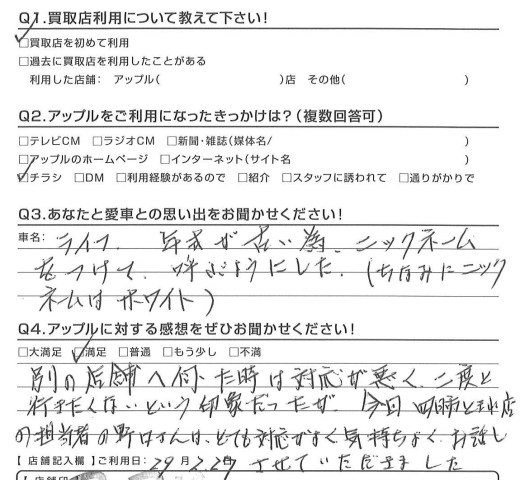 Q1.買取店利用について教えて下さい!
□買取店を初めて利用
□過去に買取店を利用したことがある
利用した店舗: アップル( )店 その他( )
Q2.アップルをご利用になったきっかけは?(複数回答可)
□テレビCM □ラジオCM □新聞・雑誌(媒体名/ )
□アップルのホームページ □インターネット(サイト名 )
□チラシ □DM □利用経験があるので □紹介 □スタッフに誘われて □通りがかりで
Q3.あなたと愛車との思い出をお聞かせください!
車名: ライフ. 年式が古い為、ニックネーム
をつけて、呼ぶようにした。(ちなみにニック
ネームは ホワイト)
Q4.アップルに対する感想をぜひお聞かせください!
□大満足 □満足 □普通 □もう少し □不満
別の店舗へ伺った時は対応が悪く、二度と
行きたくないという印象だったが、今回 四日市
の担当者の野口さんは、とても対応がよく気持ちよく お話し
【店舗記入欄】ご利用日: 29 月 2.27 させていただきました
【店舗印】